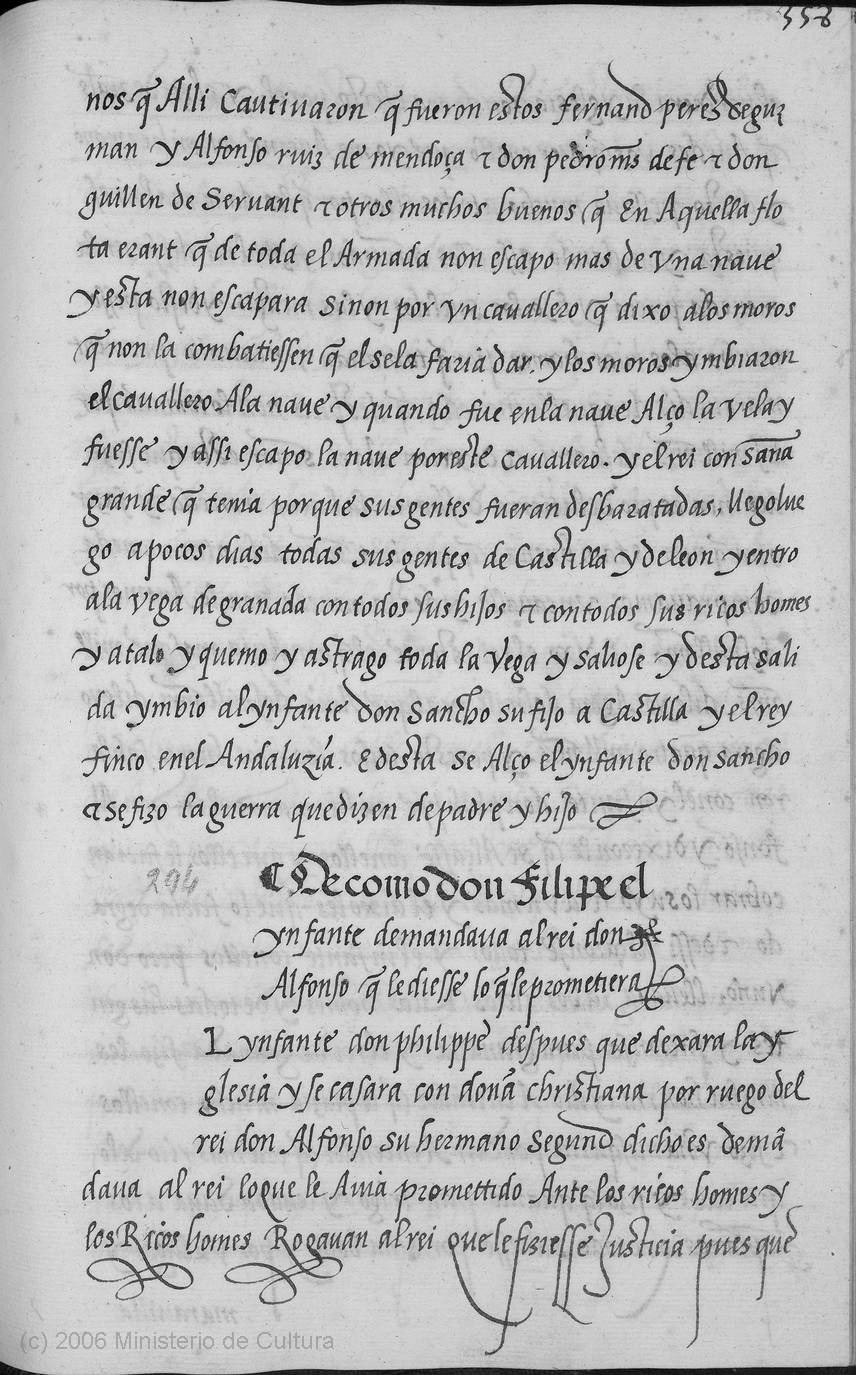 358
nos q̃ Alli Cautiuaron q̃ fueron estos fernand perez deguz
man y Alfonso ruiz de mendoça τ don pedro mr̃s de fe τ don
guillen de Seruant τ otros muchos buenos q̃ En Aquella flo
ta erant q̃ de toda el Armada non escapo mas de vna naue
y esta non escapara sinon por vn cauallero q̃ dixo alos moros
q̃ non la combatiessen q̃ el sela faria dar. y los moros ymbiaron
el cauallero Ala naue y quando fue enla naue Alço la vela y
fuesse y assi escapo la naue por este cauallero. y el rei con sana
grande q̃ tenia porque sus gentes fueran desbaratadas, llego lue
go apocos dias todas sus gentes de Castilla y de leon y entro
ala vega de granada con todos sus hijos τ con todos sus ricos homes
y atalo y quemo y astrago toda la vega y saliose y desta sali
da ymbio al ynfante don Sancho su fijo a Castilla y el rey
finco enel Andaluzia. E desta se Alço el ynfante don sancho
τ se fizo la guerra que dizen de padre y hijo
294
De como don Filipe el
ynfante demandaua al rei don
Alfonso q̃ le diesse lo q̃ le prometiera
L ynfante don philippe despues que dexara la y
glesia y se casara con dona christiana por ruego del
rei don Alfonso su hermano segund dicho es demã
daua al rei lo que le Auia promettido Ante los ricos homes y
los Ricos homes Rogauan al rei que le fiziesse Justicia pues que
(c) 2006 Ministerio de Cultura